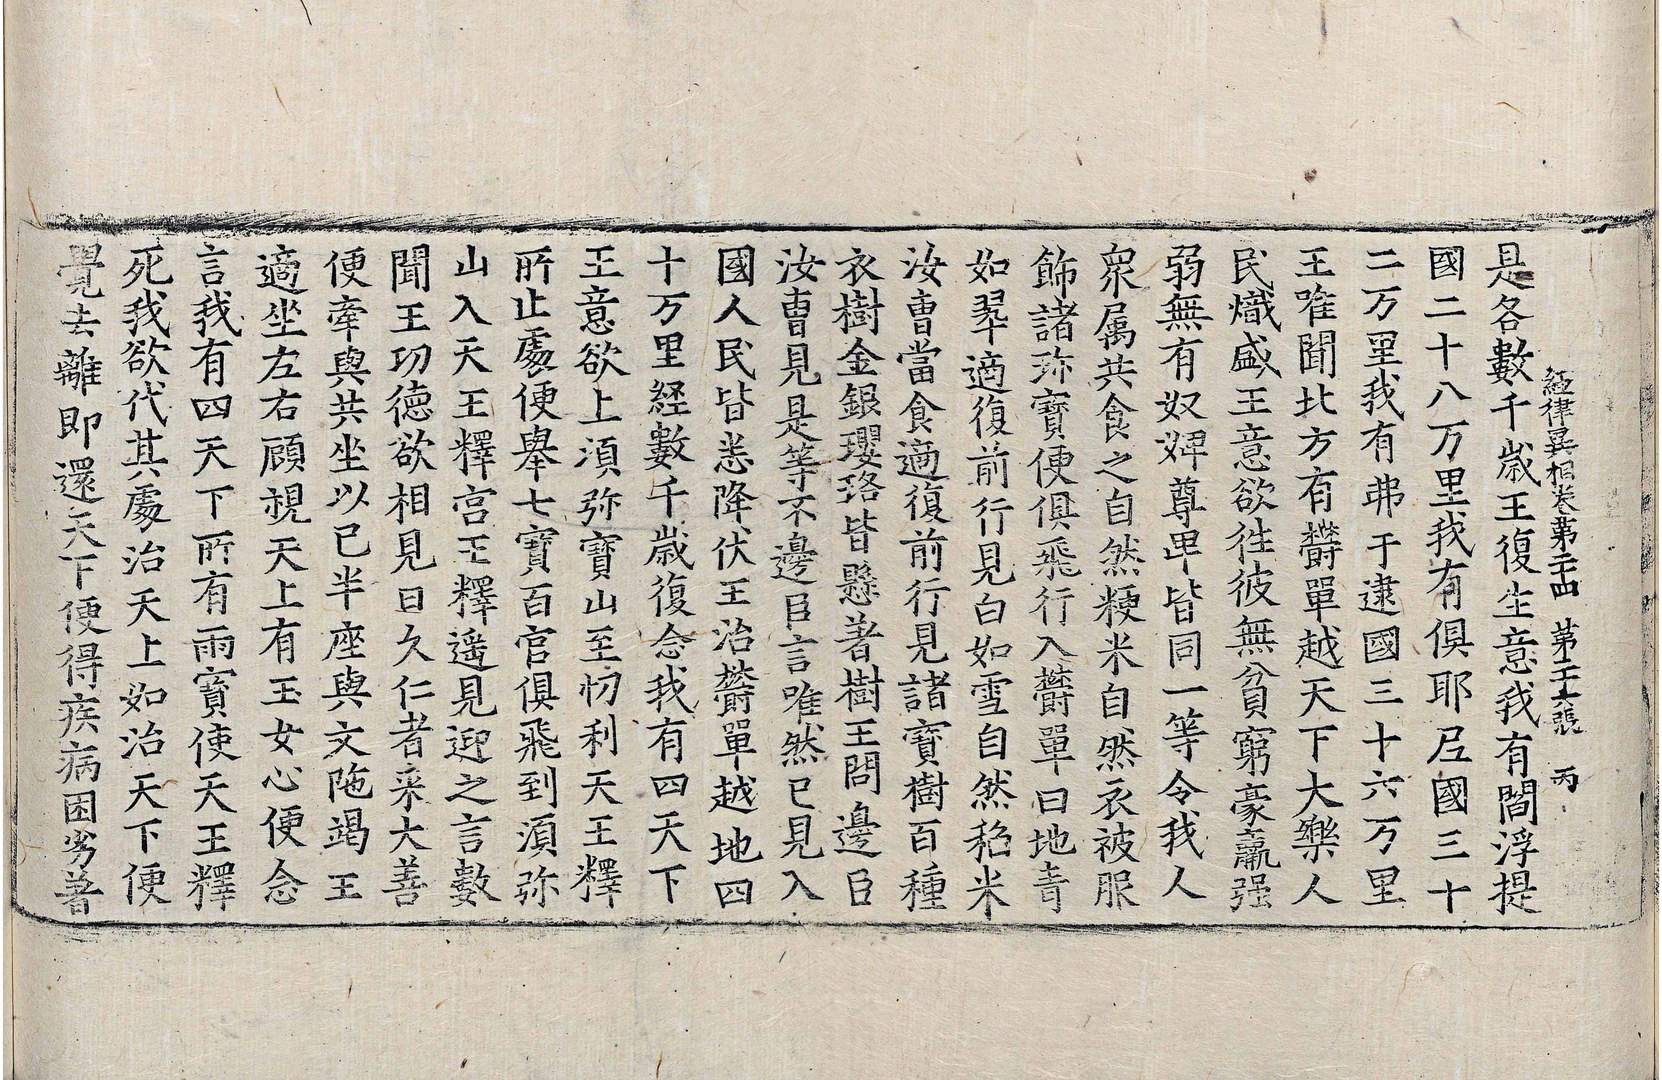 經律異相卷第二十四 第二十六張 丙
是各數千歲王復生意我有閻浮提
國二十八万里我有俱耶尼國三十
二万里我有弗于逮國三十六万里
王唯聞北方有欝單越天下大樂人
民熾盛王意欲往彼無貧窮豪羸强
弱無有奴婢尊卑皆同一等令我人
衆属共食之自然粳米自然衣被服
飾諸珎寶便俱飛行入欝單曰地青
如翠適復前行見白如雪自然稻米
汝曹當食適復前行見諸寶樹百種
衣樹金銀瓔珞皆懸著樹王問邊臣
汝曹見是等不邊臣言唯然已見入
國人民皆悉降伏王治欝單越地四
十万里経數千歲復念我有四天下
王意欲上湏弥寶山至忉利天王釋
所止處便舉七寶百官俱飛到湏弥
山入天王釋宮王釋遥見迎之言數
聞王功德欲相見日久仁者来大善
便牽與共坐以已半座與文陁竭王
適坐左右顧視天上有玉女心便念
言我有四天下所有雨寶使天王釋
死我欲代其處治天上如治天下便
覺去離即還天下便得疾病困劣著